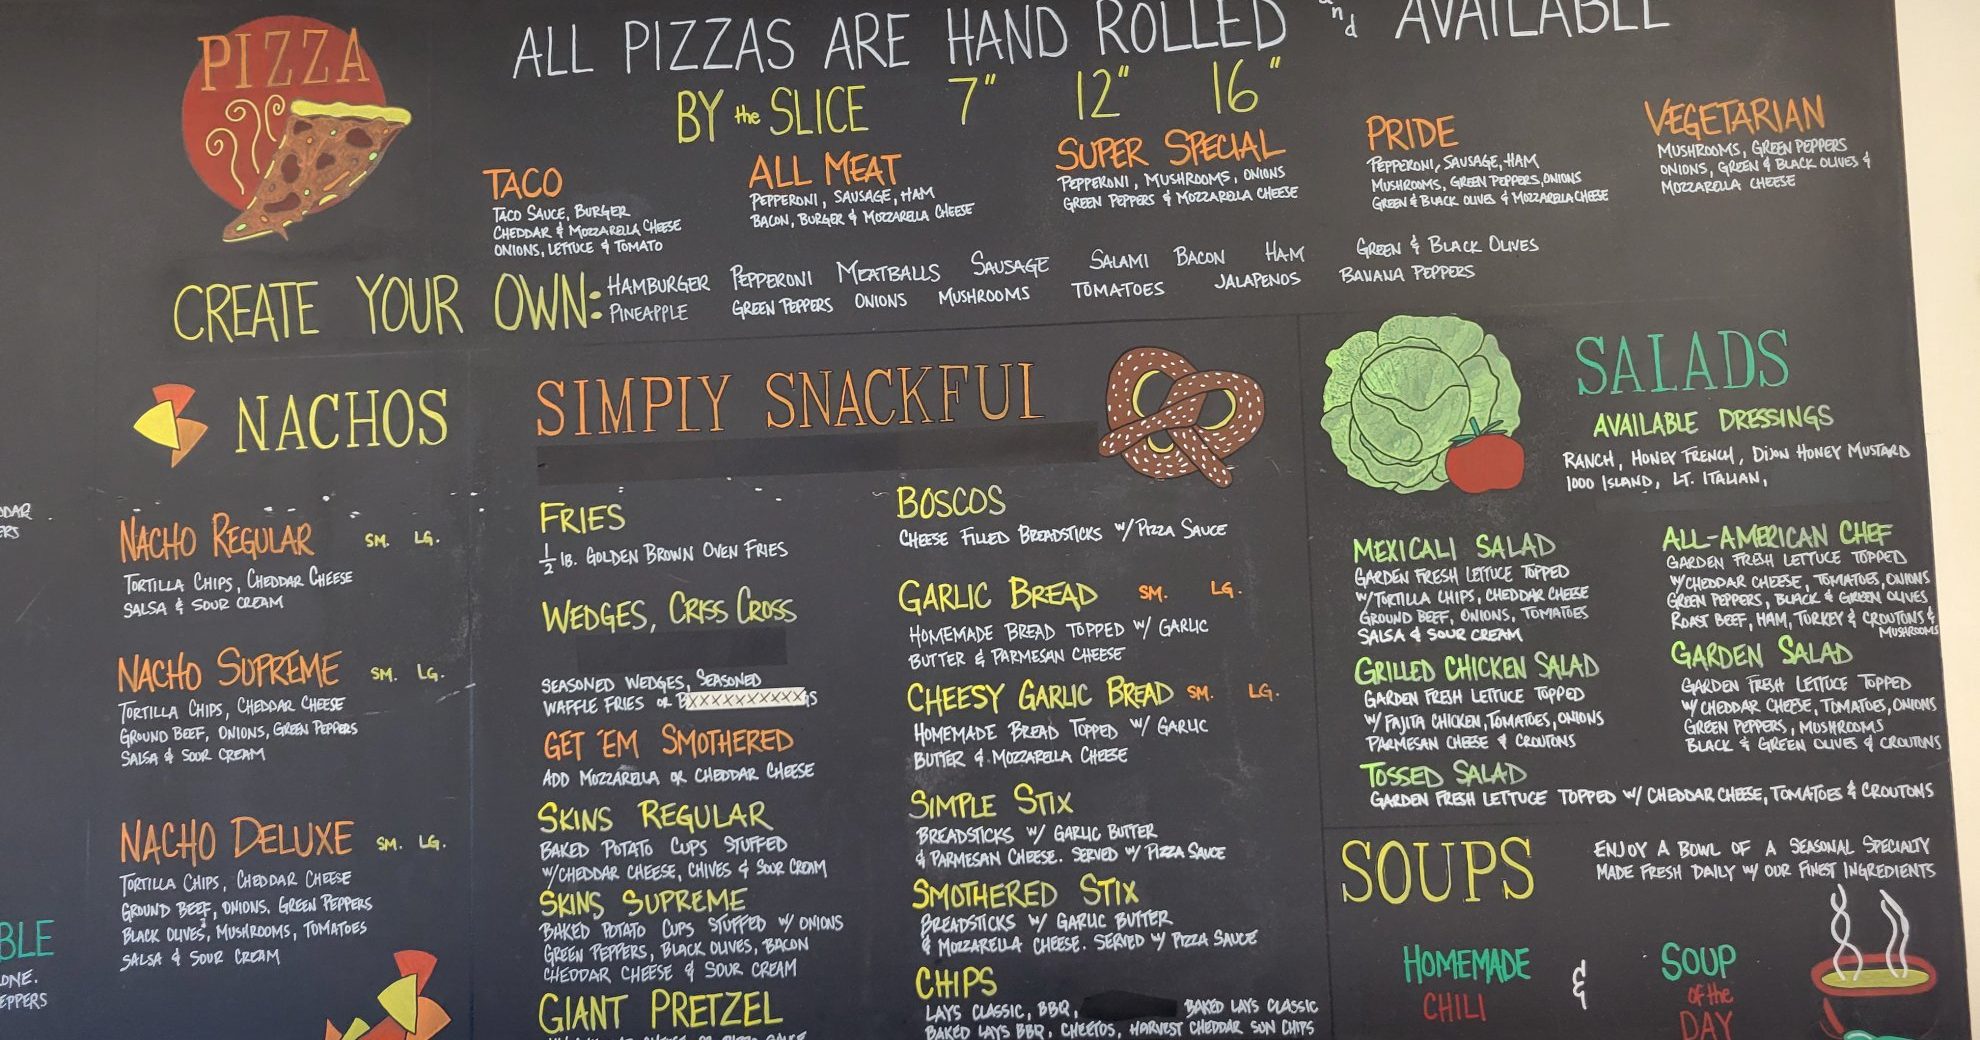 PIZZA
ALL PIZZAS ARE HAND ROLLED and AVAILABLE
BY the SLICE 7" 12" 16"
TACO
TACO SAUCE, BURGER
CHEDDAR & MOZZARELLA CHEESE
ONIONS, LETTUCE & TOMATO
ALL MEAT
PEPPERONI, SAUSAGE, HAM
BACON, BURGER & MOZZARELLA CHEESE
SUPER SPECIAL
PEPPERONI, MUSHROOMS, ONIONS
GREEN PEPPERS & MOZZARELLA CHEESE
PRIDE
PEPPERONI, SAUSAGE, HAM
MUSHROOMS, GREEN PEPPERS, ONIONS
GREEN & BLACK OLIVES & MOZZARELLA CHEESE
VEGETARIAN
MUSHROOMS, GREEN PEPPERS
ONIONS, GREEN & BLACK OLIVES &
MOZZARELLA CHEESE
CREATE YOUR OWN:
HAMBURGER PEPPERONI MEATBALLS SAUSAGE SALAMI BACON HAM GREEN & BLACK OLIVES
PINEAPPLE GREEN PEPPERS ONIONS MUSHROOMS TOMATOES JALAPENOS BANANA PEPPERS
NACHOS
NACHO REGULAR SM. LG.
TORTILLA CHIPS, CHEDDAR CHEESE
SALSA & SOUR CREAM
NACHO SUPREME SM. LG.
TORTILLA CHIPS, CHEDDAR CHEESE
GROUND BEEF, ONIONS, GREEN PEPPERS
SALSA & SOUR CREAM
NACHO DELUXE SM. LG.
TORTILLA CHIPS, CHEDDAR CHEESE
GROUND BEEF, ONIONS. GREEN PEPPERS
BLACK OLIVES, MUSHROOMS, TOMATOES
SALSA & SOUR CREAM
SIMPLY SNACKFUL
FRIES
1/2 lB. GOLDEN BROWN OVEN FRIES
WEDGES, CRISS CROSS
SEASONED WEDGES, SEASONED
WAFFLE FRIES OR
GET 'EM SMOTHERED
ADD MOZZARELLA OR CHEDDAR CHEESE
SKINS REGULAR
BAKED POTATO CUPS STUFFED
W/CHEDDAR CHEESE, CHIVES & SOUR CREAM
SKINS SUPREME
BAKED POTATO CUPS STUFFED W/ ONIONS
GREEN PEPPERS, BLACK OLIVES, BACON
CHEDDAR CHEESE & SOUR CREAM
GIANT PRETZEL
BOSCOS
CHEESE FILLED BREADSTICKS W/ PIZZA SAUCE
GARLIC BREAD SM. LG.
HOMEMADE BREAD TOPPED W/ GARLIC
BUTTER & PARMESAN CHEESE
CHEESY GARLIC BREAD SM. LG.
HOMEMADE BREAD TOPPED W/ GARLIC
BUTTER & MOZZARELLA CHEESE
SIMPLE STIX
BREADSTICKS W/ GARLIC BUTTER
& PARMESAN CHEESE. SERVED W/ PIZZA SAUCE
SMOTHERED STIX
BREADSTICKS W/ GARLIC BUTTER
& MOZZARELLA CHEESE. SERVED W/ PIZZA SAUCE
CHIPS
LAYS CLASSIC, BBQ, BAKED LAYS CLASSIC
BAKED LAYS BBQ, CHEETOS, HARVEST CHEDDAR SUN CHIPS
SALADS
AVAILABLE DRESSINGS
RANCH, HONEY FRENCH, DIJON HONEY MUSTARD
1000 ISLAND, LT. ITALIAN,
MEXICALI SALAD
GARDEN FRESH LETTUCE TOPPED
W/TORTILLA CHIPS, CHEDDAR CHEESE
GROUND BEEF, ONIONS, TOMATOES
SALSA & SOUR CREAM
GRILLED CHICKEN SALAD
GARDEN FRESH LETTUCE TOPPED
W/ FAJITA CHICKEN, TOMATOES, ONIONS
PARMESAN CHEESE & CROUTONS
ALL-AMERICAN CHEF
GARDEN FRESH LETTUCE TOPPED
W/CHEDDAR CHEESE, TOMATOES, ONIONS
GREEN PEPPERS, BLACK & GREEN OLIVES
ROAST BEEF, HAM, TURKEY & CROUTONS &
MUSHROOMS
GARDEN SALAD
GARDEN FRESH LETTUCE TOPPED
W/ CHEDDAR CHEESE, TOMATOES, ONIONS
GREEN PEPPERS, MUSHROOMS
BLACK & GREEN OLIVES & CROUTONS
TOSSED SALAD
GARDEN FRESH LETTUCE TOPPED W/ CHEDDAR CHEESE, TOMATOES & CROUTONS
SOUPS
ENJOY A BOWL OF A SEASONAL SPECIALTY
MADE FRESH DAILY W/ OUR FINEST INGREDIENTS
HOMEMADE
CHILI
&
SOUP
of the
DAY